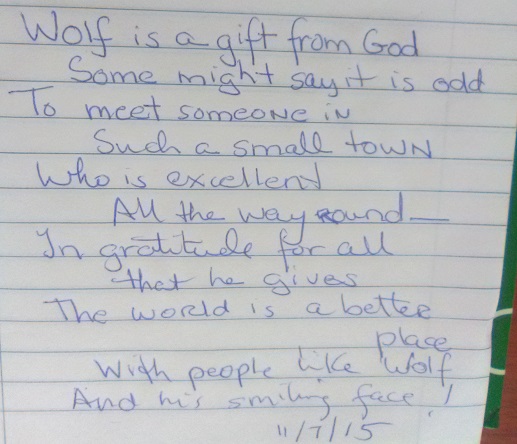 Wolf is a gift from God
Some might say it is odd
To meet someone in
Such a small town
Who is excellent
All the way round—
In gratitude for all
that he gives
The world is a better
place
With people like Wolf
And his smiling face!
11/7/15